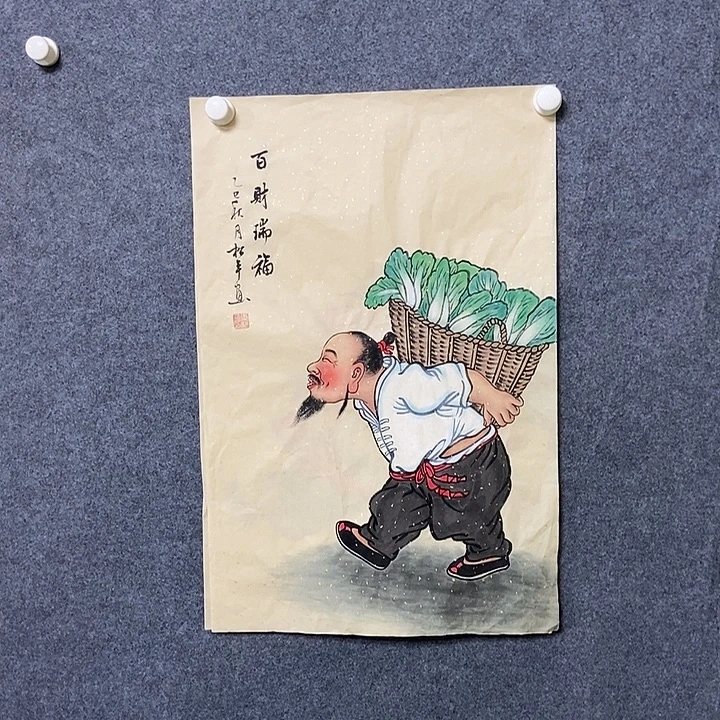 百财瑞福
乙巳秋月松年画